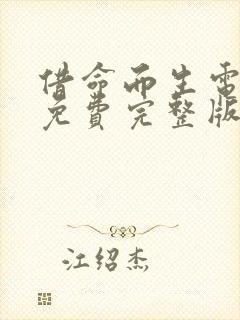 借命而生电
免费完整版
江绍杰